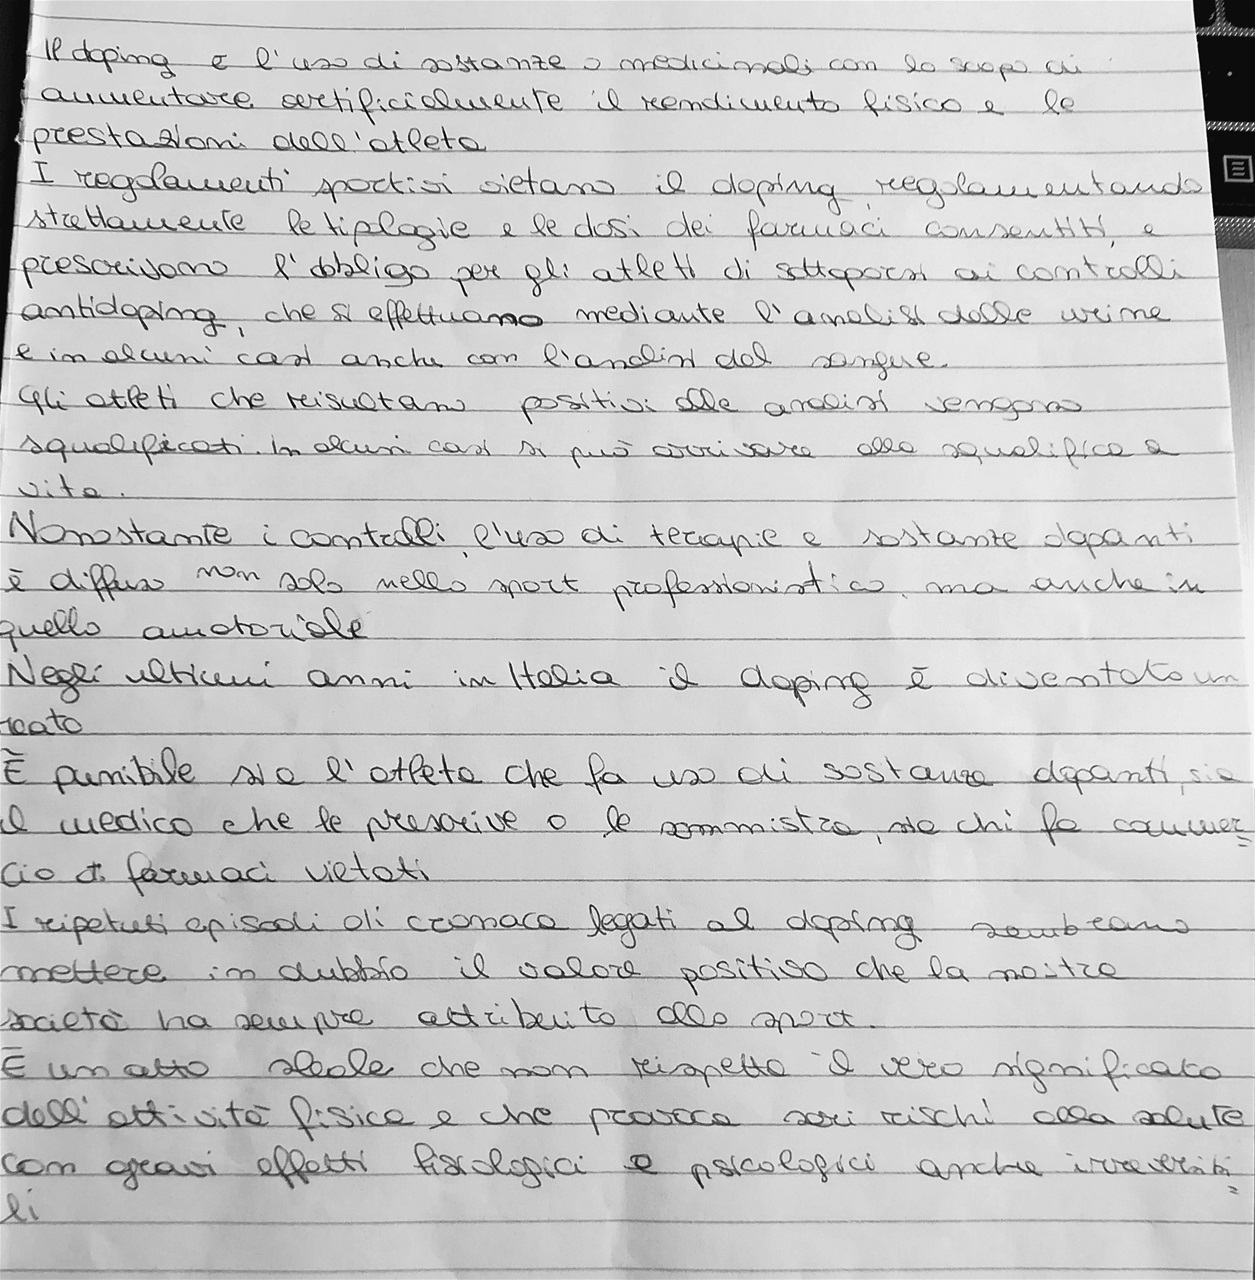 Il doping è l'uso di sostanze o medicinali con lo scopo di
aumentare artificialmente il rendimento fisico e le
prestazioni dell'atleta
I regolamenti sportivi vietano il doping, regolamentando
strettamente le tipologie e le dosi dei farmaci consentiti, e
prescrivono l'obbligo per gli atleti di sottoporsi ai controlli
antidoping, che si effettuano mediante l'analisi delle urine
e in alcuni casi anche con l'analisi del sangue.
Gli atleti che risultano positivi alle analisi vengono
squalificati. In alcuni casi si può arrivare alla squalifica a
vita.
Nonostante i controlli, l'uso di terapie e sostanze dopanti
è diffuso non solo nello sport professionistico, ma anche in
quello amatoriale
Negli ultimi anni in Italia il doping è diventato un
reato
È punibile sia l'atleta che fa uso di sostanze dopanti, sia
il medico che le prescrive o le somministra, sia chi fa commer=
cio di farmaci vietati
I ripetuti episodi di cronaca legati al doping sembrano
mettere in dubbio il valore positivo che la nostra
società ha sempre attribuito allo sport.
È un atto sleale che non rispetta il vero significato
dell'attività fisica e che provoca seri rischi alla salute
con gravi effetti fisiologici e psicologici anche irreversibi=
li